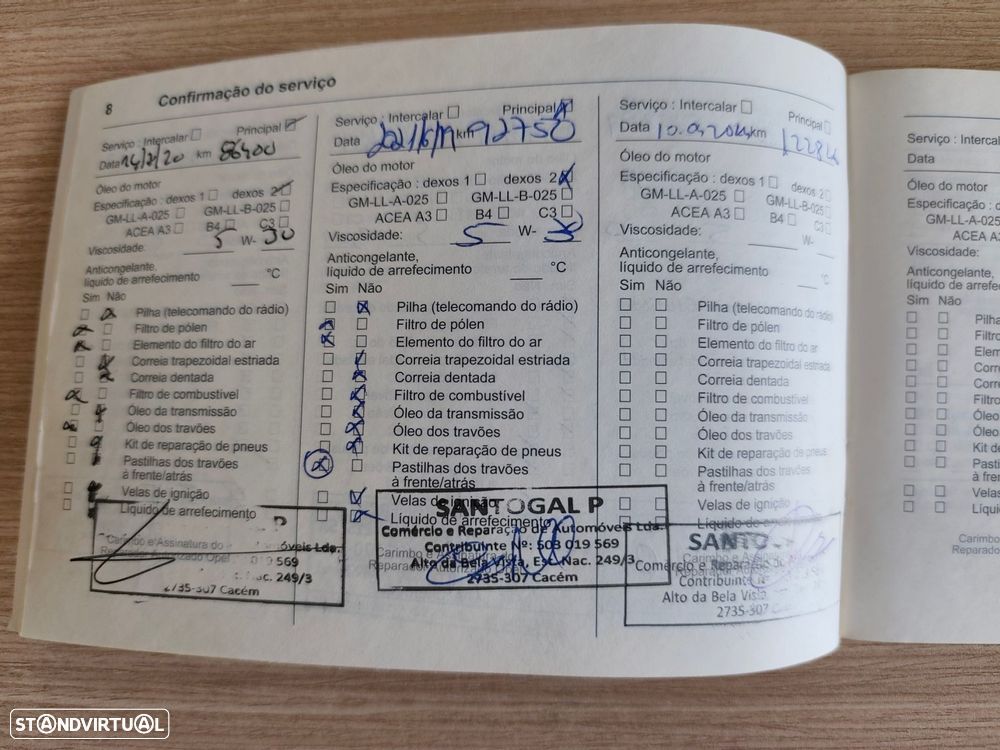 8 Confirmação do serviço
Serviço : Intercalar Principal
Data 14/7/20 km 56400
Óleo do motor
Especificação : dexos 1 dexos 2
GM-LL-A-025 GM-LL-B-025
ACEA A3 B4 C3
Viscosidade: 5 W- 30
Anticongelante,
líquido de arrefecimento °C
Sim Não
Pilha (telecomando do rádio)
Filtro de pólen
Elemento do filtro do ar
Correia trapezoidal estriada
Correia dentada
Filtro de combustível
Óleo da transmissão
Óleo dos travões
Kit de reparação de pneus
Pastilhas dos travões
à frente/atrás
Velas de ignição
Líquido de arrefecimento
P
Carimbo e Assinatura do
óveis Lda.
Reparador Autorizado Opel
569
Nac. 249/3
2735-307 Cacém
Serviço : Intercalar Principal
Data km 92750
Óleo do motor
Especificação : dexos 1 dexos 2
GM-LL-A-025 GM-LL-B-025
ACEA A3 B4 C3
Viscosidade: 5 W- 30
Anticongelante,
líquido de arrefecimento °C
Sim Não
Pilha (telecomando do rádio)
Filtro de pólen
Elemento do filtro do ar
Correia trapezoidal estriada
Correia dentada
Filtro de combustível
Óleo da transmissão
Óleo dos travões
Kit de reparação de pneus
Pastilhas dos travões
à frente/atrás
Velas de ignição
Líquido de arrefecimento
SANTOGAL P
Comércio e Reparação de Automóveis Lda.
Contribuinte Nº: 503 019 569
Carimbo e Assinatura do
Alto da Bela Vista, Est. Nac. 249/3
Reparador Autorizado
2735-307 Cacém
Serviço : Intercalar Principal
Data km
Óleo do motor
Especificação : dexos 1 dexos 2
GM-LL-A-025 GM-LL-B-025
ACEA A3 B4 C3
Viscosidade: W-
Anticongelante,
líquido de arrefecimento °C
Sim Não
Pilha (telecomando do rádio)
Filtro de pólen
Elemento do filtro do ar
Correia trapezoidal estriada
Correia dentada
Filtro de combustível
Óleo da transmissão
Óleo dos travões
Kit de reparação de pneus
Pastilhas dos travões
à frente/atrás
Velas de ignição
Líquido de
SANTO
Carimbo e Assinatura do
Comércio e Reparação
Contribuinte N
Alto da Bela Vista
2735-307
Serviço : Interca
Data
Óleo do motor
Especificação :
GM-LL-A-02
ACEA A
Viscosidade:
Anticongelante,
líquido de arrefe
Sim Não
Pilha
Filtro
Elem
Corre
Corre
Filtro
Óleo
Óleo
Kit d
Past
à fre
Vela
Líqu
Carimbo
Reparado
STANDVIRTUAL